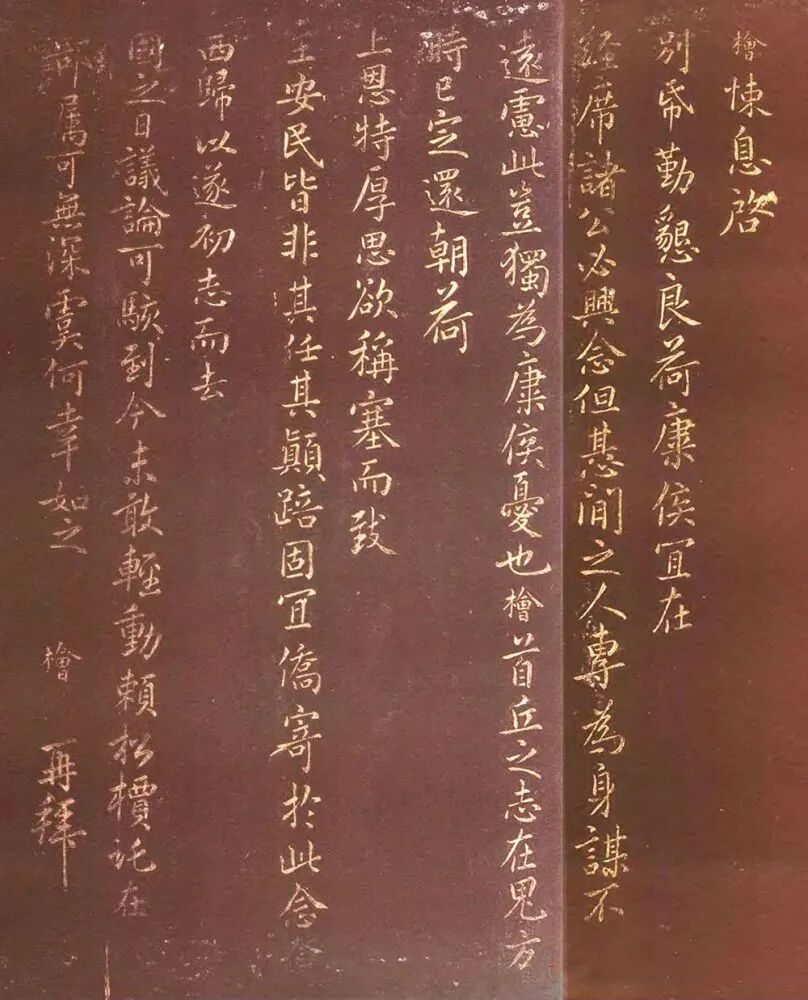 檜悚息啓
別帋勤懇良荷康侯冝在
經席諸公必興念但甚間之人專為身謀不
遠慮此豈獨為康侯憂也檜首丘之志在鬼方
時已定還朝荷
上恩特厚思欲稱塞而致
主安民皆非其任其顛踣固冝僑寄於此念念
西歸以遂初志而去
國之日議論可駭到今未敢輕動賴松檟託在
部屬可無深虞何幸如之 檜 再拜